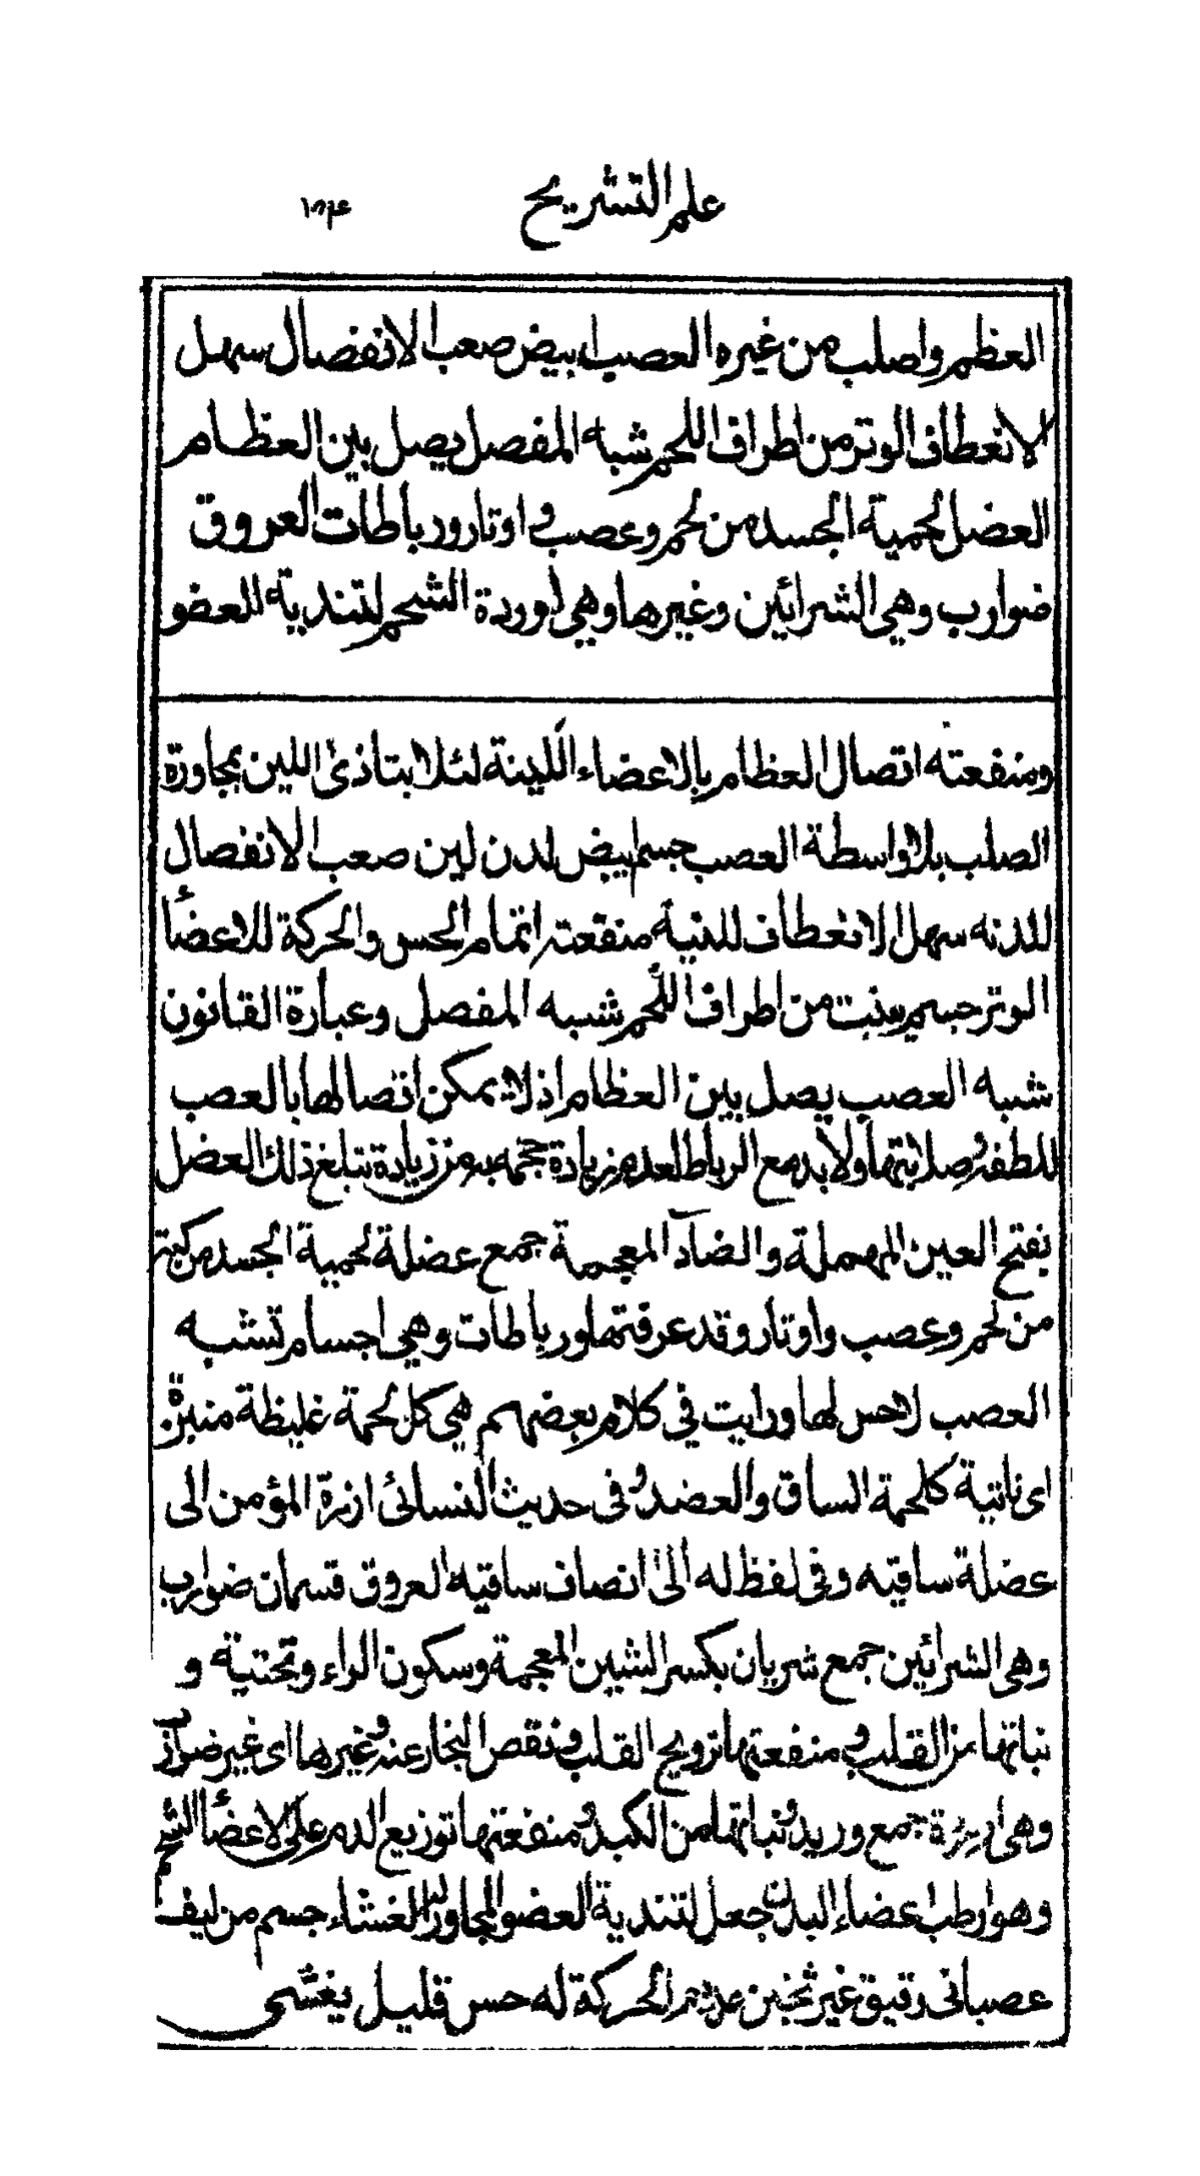 علم التشريح ١٣۴
العظم واصلب من غيره العصب ابيض صعب الانفصال سهل
الانعطاف الوتر من اطراف اللحم شبه المفصل يصل بين العظام
العضل لحمية الجسد من لحم وعصب و اوتار ورباطات العروق
ضوارب وهي الشرائين وغيرها وهي اوردة الشحم لتندية العضو
ومنفعته اتصال العظام بالاعضاء اللينة لئلا يتاذى اللين بمجاورة
الصلب بلا واسطة العصب جسم ابيض لدن لين صعب الانفصال
للدنه سهل الانعطاف للنية منفعته اتمام الحس والحركة للاعضاء
الوتر جسم ينبت من اطراف اللحم شبه المفصل وعبارة القانون
شبه العصب يصل بين العظام اذ لا يمكن اتصالها بالعصب
للطفه وصلابتها ولا بد مع الرباط زيادة حجمه به من زيادة تبلغ ذلك العضل
بفتح العين المهملة والضاد المعجمة جمع عضلة لحمية الجسد مركبة
من لحم وعصب واوتار وقد عرفتها ورباطات وهي اجسام تشبه
العصب لا حس لها ورايت في كلام بعضهم هي كل لحمة غليظة منبرة
اى ناتية كلحمة الساق والعضد وفى حديث النسائى ازرة المؤمن الى
عضلة ساقيه وفى لفظ له الى انصاف ساقيه العروق قسمان ضوارب
وهى الشرائين جمع شريان بكسر الشين المعجمة وسكون الراء وتحتية و
نباتها من القلب و منفعتها ترويح القلب ونفض البخار عنه وغيرها اى غير ضوارب
وهى اوردة جمع وريد ونباتها من الكبد ومنفعتها توزيع الدم على الاعضاء الشحم
وهو ارطب اعضاء البدن جعل لتندية العضو المجاور له الغشاء جسم من ليف
عصبانى رقيق غير ثخين عديم الحركة له حس قليل يغشى